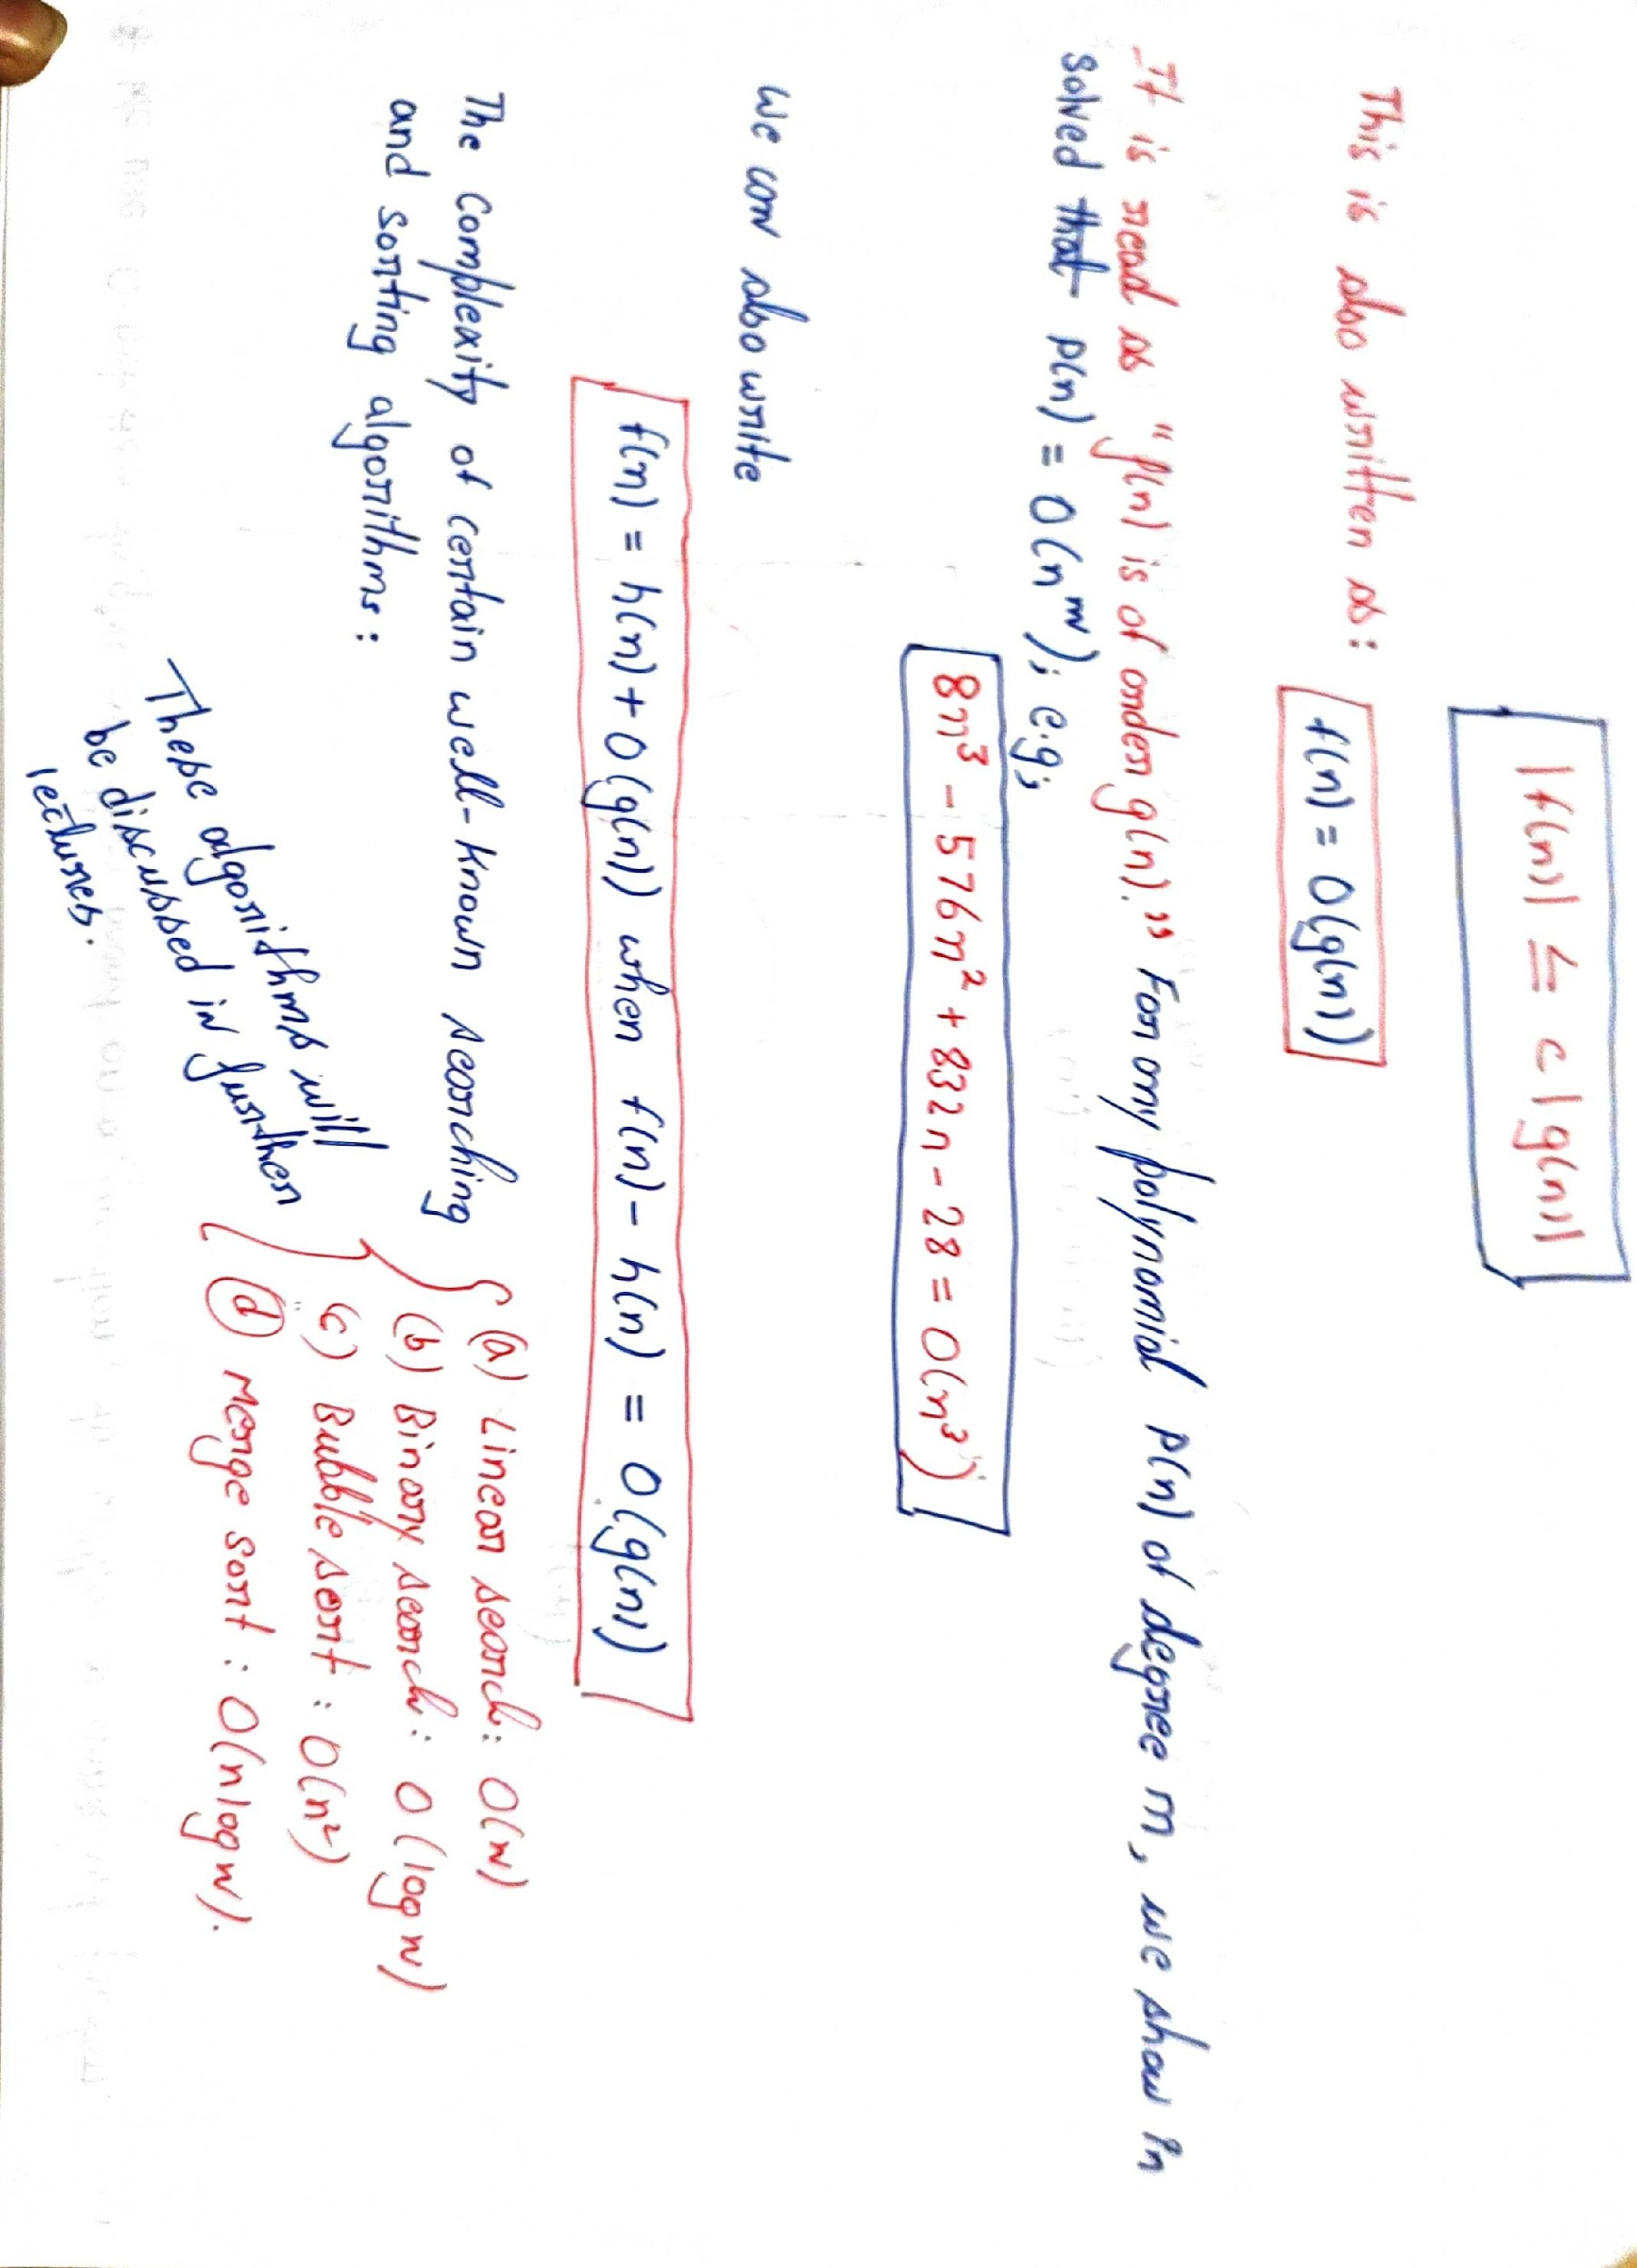 |f(n)| ≤ c|g(n)|
This is also written as: f(n) = O(g(n))
It is read as "f(n) is of order g(n)." For any polynomial P(n) of degree m, we show in
solved that P(n) = O(n^m); e.g;
8n³ - 576n² + 832n - 28 = O(n³)
we can also write
f(n) = h(n) + O(g(n)) when f(n) - h(n) = O(g(n))
The complexity of certain well-known searching
and sorting algorithms:
(a) Linear search: O(n)
(b) Binary search: O(log n)
(c) Bubble sort: O(n²)
(d) Merge sort: O(n log n).
These algorithms will
be discussed in further
lectures.